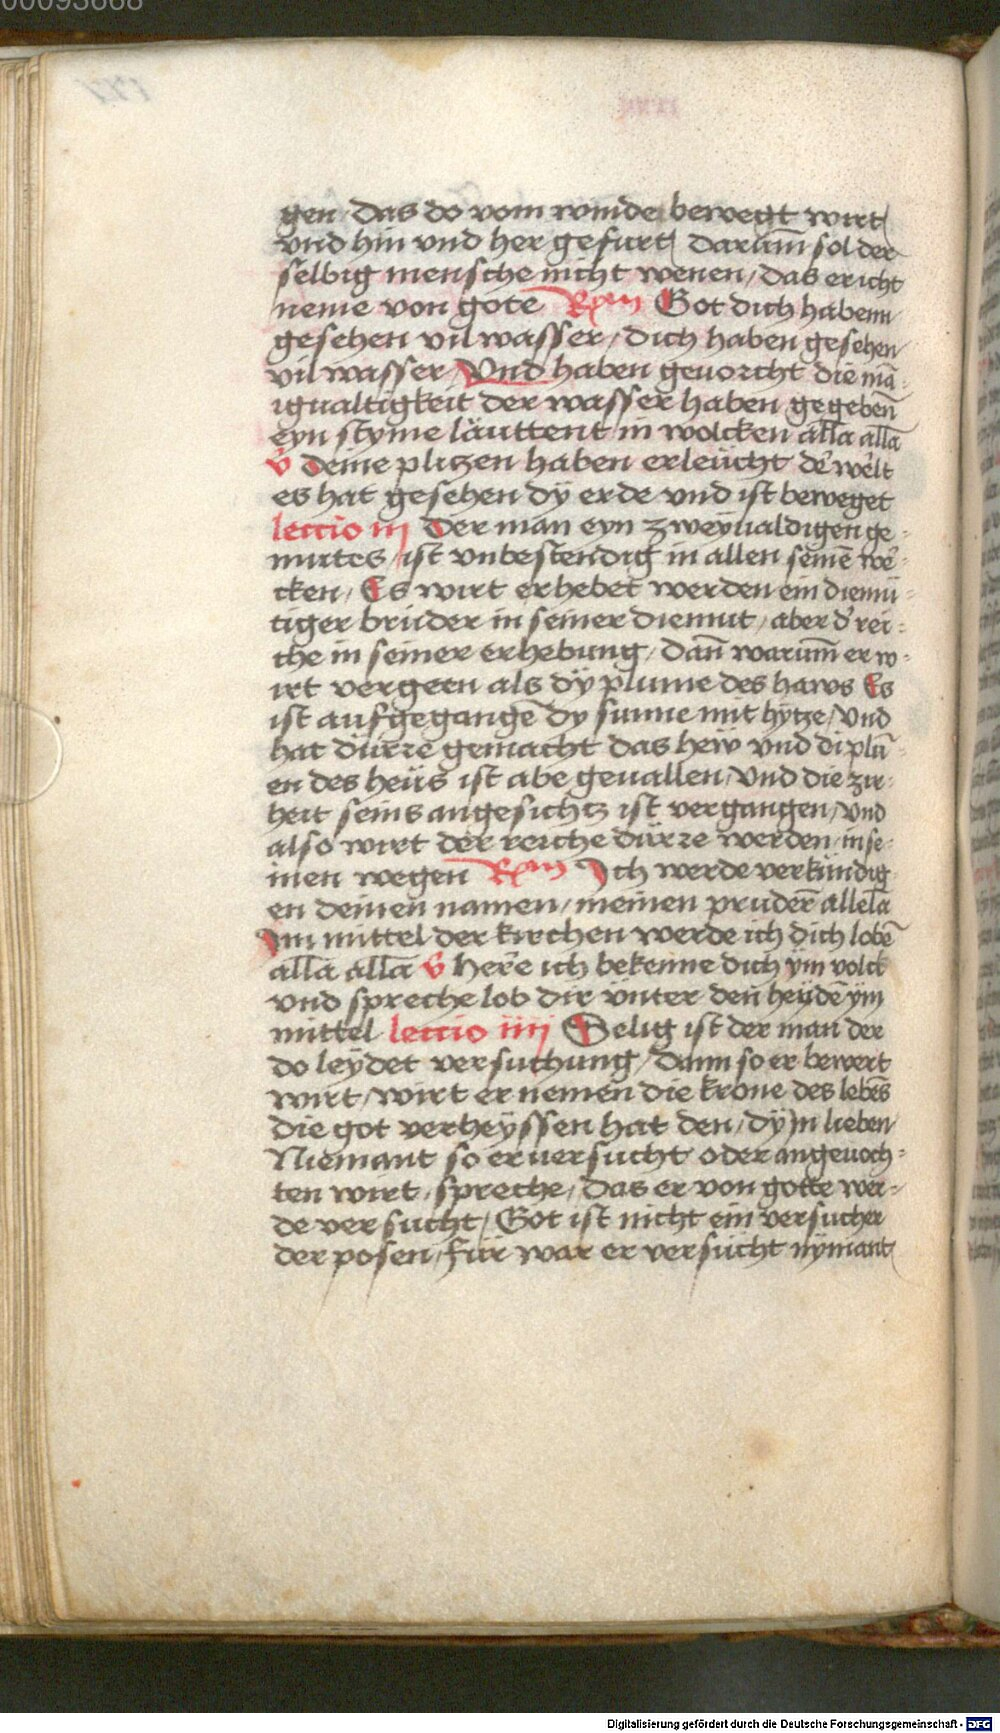 00093668
gen / das do vom winde bewegt wirt /
vnd hin vnd her gefurt / darum̄ sol der
selbig mensche nicht wenen / das er icht
neme von gote Rm Got dich habenn
gesehen vil wasser / dich haben gesehen
vil wasser / Vnd haben geuorcht die mā-
igualtigkeit der wasser haben gegebenn̄
eyn styme läuttent in wolcken all̄a all̄a
V̊ Deine plitzen haben erleücht de' we'lt
es hat gesehen dÿ erde vnd ist beweget
leccio iij Der man eyn zweyualdigen ge-
mutes / ist vnbestendig in allen seinē we'-
cken / Es wirt erhebet werden ein diemü-
tiger brüder in seiner diemut / aber d' rei-
che in seiner erhebung / Dan̄ warum̄ er w-
irt vergeen als dÿ plume des haws Es
ist aufgegangē dy sunne mit hytze / Vnd
hat dürre gemacht das heẅ vnd di plū-
en des heüs ist abe geuallen / Vnd die zir-
heit seins angesichtz ist vergangen / Vnd
also wirt der reiche dürre werden in se-
inen wegen Rm Ich werde verkündig
en deinen namen / meinen prudern̄ allel̄a
Im mittel der kirchen werde ich dich lobē
all̄a all̄a V̊ here ich bekenne dich ÿm volck
vnd spreche lob dir ünter den heÿdē ÿm
mittel leccio iiij Selig ist der man der
do leÿdet versuchung / dann so er bewert
wirt / wirt er nemen die krone des lebēs
die got verheÿssen hat den / dÿ jn lieben /
Niemant so er versucht oder angeuoch-
ten wirt / spreche / das er von gotte wer-
de versucht / Got ist nicht ein versucher
der posen / für war er versücht nÿmant
Digitalisierung gefördert durch die Deutsche Forschungsgemeinschaft - DFG